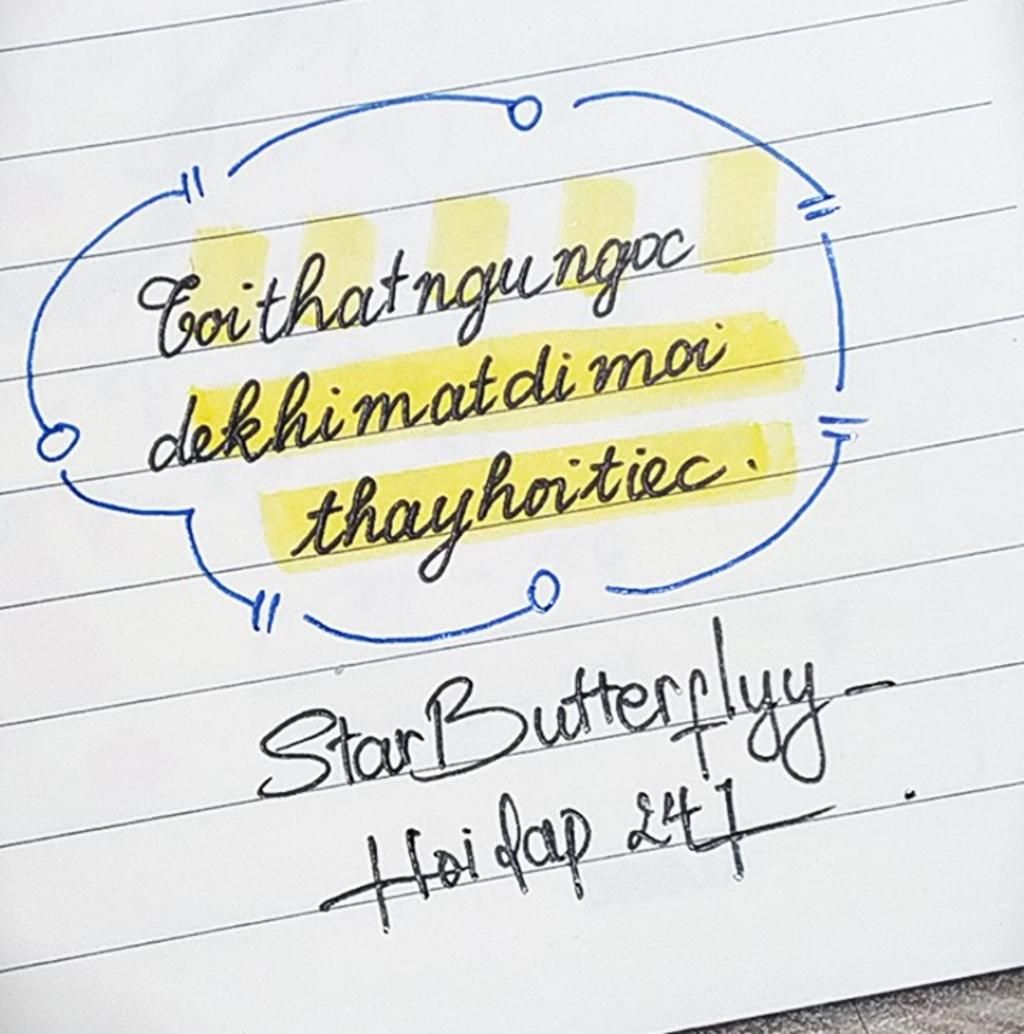 Toi that ngu ngoc
de khi mat di moi
thay hoi tiec.
StarButterflyy -
Hoidap 247.